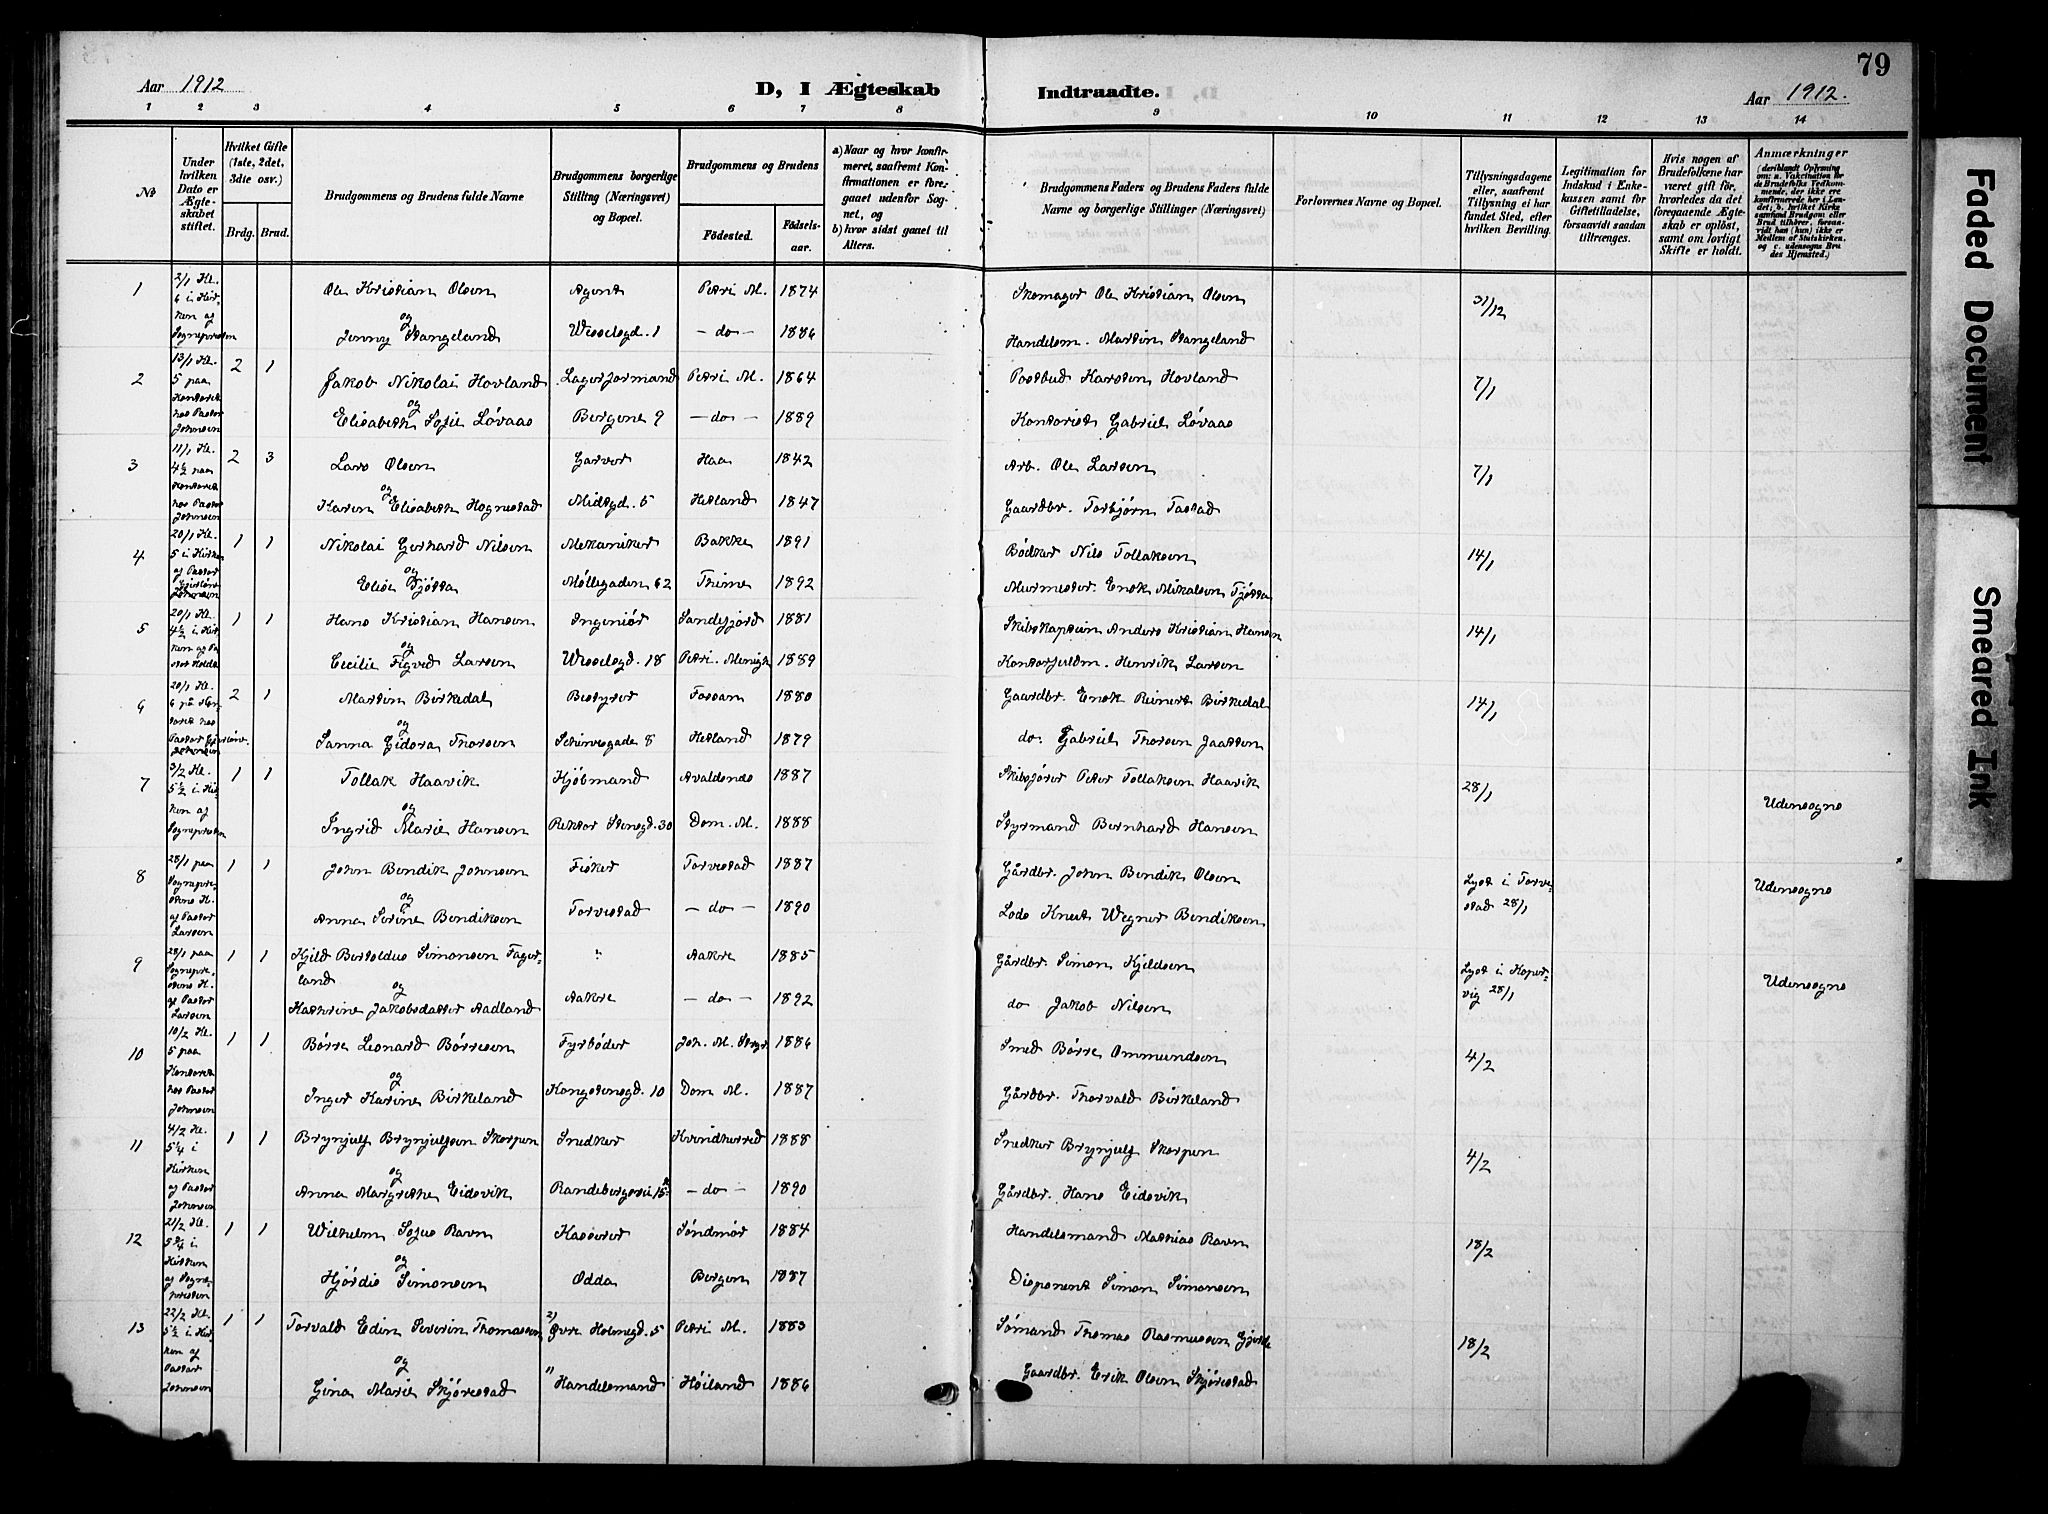 79
Aar 1912
D, I Ægteskab Indtraadte.
Aar 1912.
1 2 3 4 5 6 7 8 9 10 11 12 13 14
№
Under hvilken Dato er Ægteskabet stiftet.
Hvilket Gifte (1ste, 2det, 3die osv.)
Brdg. Brud.
Brudgommens og Brudens fulde Navne
Brudgommens borgerlige Stilling (Næringsvei) og Bopæl.
Brudgommens og Brudens
Fødested. Fødselsaar.
a) Naar og hvor konfirmeret, saafremt Konfirmationen er foregaaet udenfor Sognet, og
b) hvor sidst gaaet til Alters.
Brudgommens Faders og Brudens Faders fulde Navne og borgerlige Stillinger (Næringsvei)
Forlovernes Navne og Bopæl.
Tillysningsdagene eller, saafremt Tillysning ei har fundet Sted, efter hvilken Bevilling.
Legitimation for Indskud i Enkekassen samt for Giftetilladelse, forsaavidt saadan tiltrænges.
Hvis nogen af Brudefolkene har været gift før, hvorledes da det foregaaende Ægteskab er opløst, samt om lovligt Skifte er holdt.
Anmærkninger
(deriblandt Oplysning om: a. Vakcination for de Brudefolks Vedkommende, der ikke ere konfirmerede her i Landet; b. hvilket Kirkesamfund Brudgom eller Brud tilhører, forsaavidt han (hun) ikke er Medlem af Statskirken, og c. udensogns Brudes Hjemsted.)
1 2/1 Kl. 6 i Kirken af Sognepresten Ole Kristian Olsen Agent Petri M. 1874 Skomager Ole Kristian Olsen 31/12
og
Jenny Stangeland Wesselsgd. 1 — do — 1886 Handelsm. Martin Stangeland
2 13/1 Kl. 5 paa Kontoret hos Pastor Johnsen 2 1 Jakob Nikolai Hovland Lagerformand Petri M. 1864 Postbud Karsten Hovland 7/1
og
Elisabeth Sofie Løvaas Bergene 9 — do — 1889 Kontorist Gabriel Løvaas
3 11/1 Kl. 4½ paa Kontoret hos Pastor Johnsen 2 3 Lars Olsen Garver Haa 1842 Arb. Ole Larsen 7/1
og
Karen Elisabeth Hognestad Midtgd. 5 Hetland 1847 Gaardbr. Torbjørn Tastad
4 20/1 Kl. 5 i Kirken af Pastor Johnsen 1 1 Nikolai Gerhard Nilsen Mekaniker Bakke 1891 Bødker Nils Tollaksen 14/1
og
Elise Tjøtta Møllegaden 62 Thime 1892 Murmester Enok Mikalsen Tjøtta
5 20/1 Kl. 4½ i Kirken af Pastor Holdt 1 1 Hans Kristian Hansen Ingeniør Sandefjord 1881 Skibskaptein Anders Kristian Hansen 14/1
og
Cecilie Figved Larsen Wesselsgd. 18 Petri Menigh 1889 Kontorfuldm. Henrik Larsen
6 20/1 Kl. 6 på Kontoret hos Pastor 2 1 Martin Birkedal Bestyrer Fossan 1880 Gaardbr. Enok Reinert Birkedal 14/1
og
Sanna Gidora Thorsen 8 Hetland 1879 do. Gabriel Thorsen Jaatten
7 3/2 Kl. 5½ i Kirken af Sognepresten 1 1 Tollak Haavik Kjøbmand Avaldsnes 1887 Skibsfører Peter Tollaksen Haavik 28/1 Udensogns
og
Ingrid Marie Hansen Rektor Stensgd. 30 Dom. M. 1888 Styrmand Bernhard Hansen
8 28/1 paa Sogneprestens K. af Pastor Larsen 1 1 John Bendik Johnsen Fisker Torvestad 1887 Gårdbr. John Bendik Olsen Lyst i Torvestad 28/1 Udensogns
og
Anna Serine Bendiksen Torvestad — do — 1890 Lods Knut Wegner Bendiksen
9 28/1 paa Sogneprestens K. af Pastor Larsen 1 1 Kjeld Bertoldus Simonsen Fagerland " Aakre 1885 Gårdbr. Simon Kjeldsen Lyst i Kopervig 28/1 Udensogns
og
Kathrine Jakobsdatter Aadland Aakre — do — 1892 do Jakob Nilsen
10 10/2 Kl. 5 paa Kontoret hos Pastor Johnsen 1 1 Børre Leonard Børresen Fyrbøder Joh. M. Stvgr. 1886 Smed Børre Ommundsen 4/2
og
Inger Karine Birkeland Kongstensgd. 10 Dom M. 1887 Gårdbr. Thorvald Birkeland
11 4/2 Kl. 5¼ i Kirken af Pastor Johnsen 1 1 Brynjulf Brynjulfsen Skorpen Snedker Kvindherred 1888 Snedker Brynjulf Skorpen 4/2
og
Anna Margrethe Eidsvik Randebergsvei 15 — do — 1890 Gårdbr. Hans Eidsvik
12 21/2 Kl. 5¾ i Kirken af Sognepresten 1 1 Wilhelm Sofus Ravn Kasserer Søndmør 1884 Handelsmand Mathias Ravn 18/2
og
Hjørdis Simonsen Odda Bergen 1887 Disponent Simon Simonsen
13 22/2 Kl. 5½ i Kirken af Pastor Johnsen 1 1 Torvald Edin Severin Thomassen 2) Øvre Holmegd. 5 Petri M. 1883 Sømand Thomas Rasmussen Gjerde 18/2
og
Gina Marie Skjørestad 1) Handelsmand Høiland 1886 Gaardbr. Erik Olsen Skjørestad
Faded Document
Smeared Ink